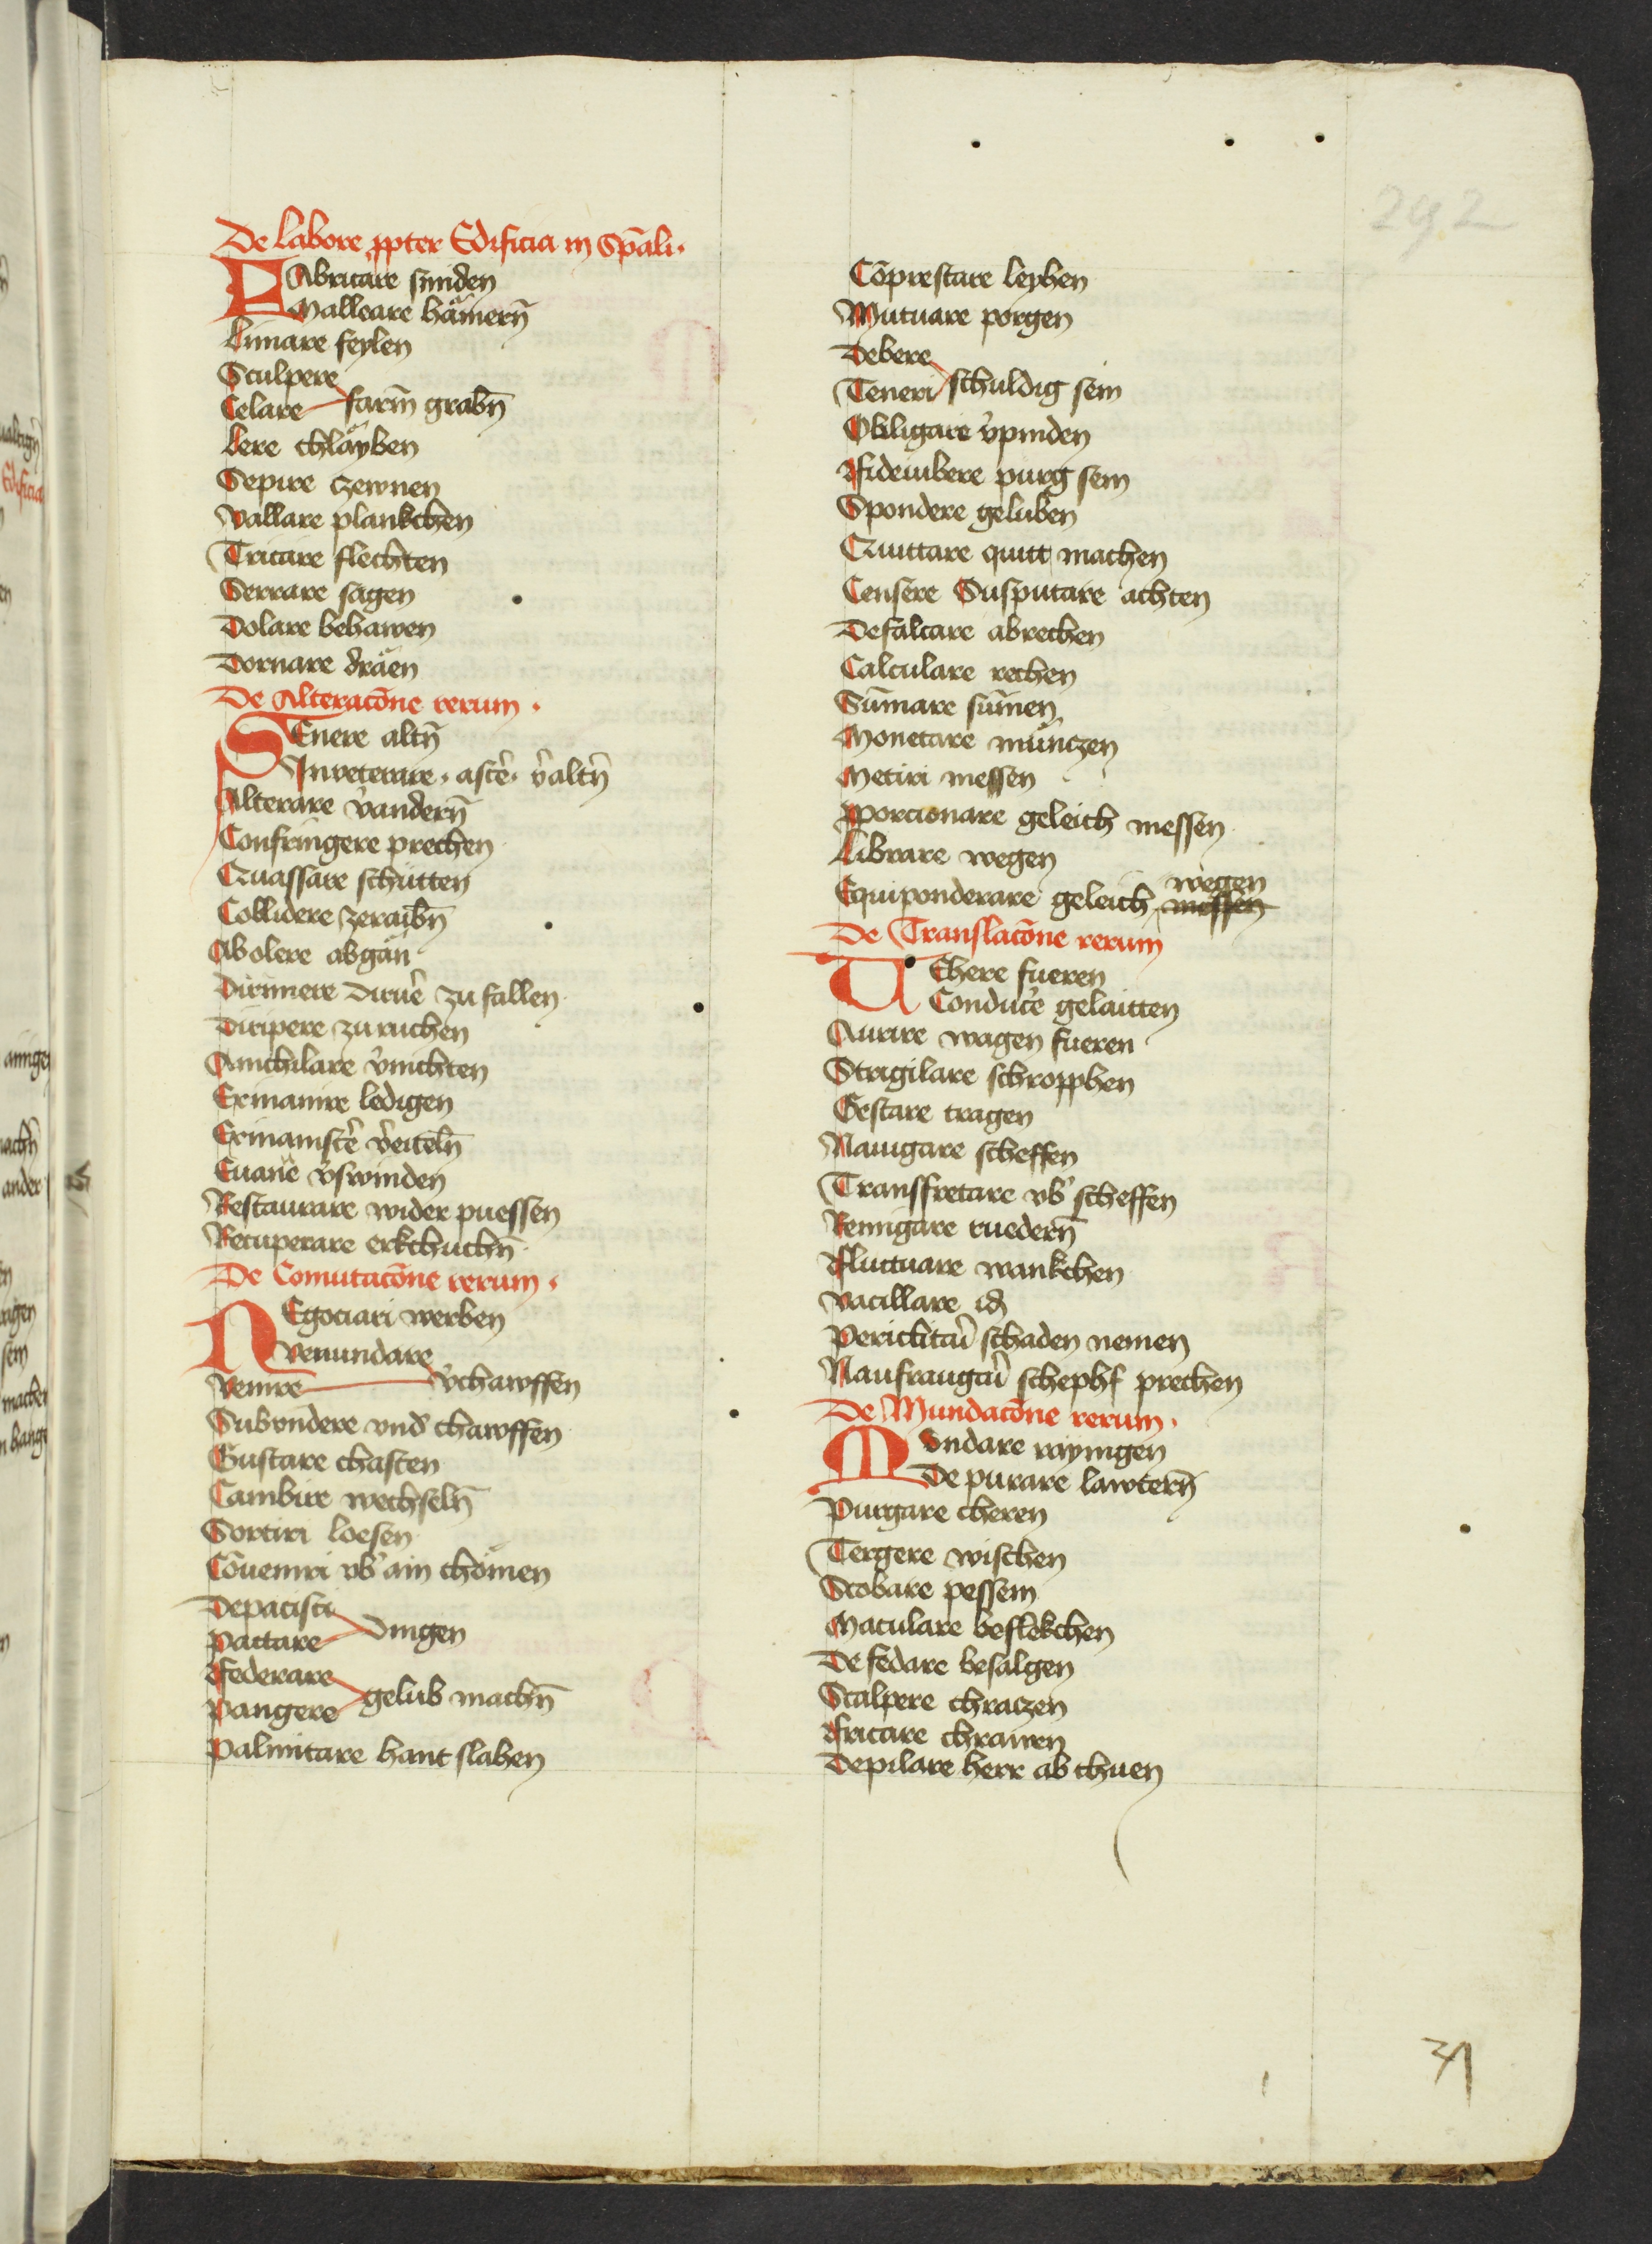 292
De labore ꝓpter Edificia in Spāli
FAbricare smiden
Malleare hämern̄
Limare feylen
Sculpere
Celare farm̄ grabn̄
Lere chläyben
Sepire czewnen
Vallare plankchen
Tricare flechten
Serrare sagen
Dolare behawen
Dornare dräen
De Alteracōne rerum
SEnere altn̄
Inveterare · asce͛ · v͛altn̄
Alterare v͛andern̄
Confringere prechen
Quassare schütten
Collidere zeraibn̄
Abolere abgän
Dirimere Dirue͛ zu fallen
Diripere zu ruchen
Anichilare v͛nichten
Exinanire ledigen
Exinanisce͛ v͛eiteln̄
Euane͛ v͛swinden
Restaurare wider puessen
Recuperare erkchuchn̄
De Comutacōne rerum
NEgociari werben
Venundare
Venire v͛chawffen
Subvndere vnd͛ chawffen
Gustare chasten
Cambire wechseln̄
Sortiri loesen
Cōueniri vb͛ ain chömen
Depacisci
Pactare dingen
Federare
Pangere gelub machn̄
Palmitare hant slahen
Cōprestare leyhen
Mutuare porgen
Debere
Teneri schuldig sein
Obligare v͛pinden
Fideiubere purg sein
Spondere geluben
Quittare quitt machen
Censere Susputare achten
Defalcare abrechen
Calculare rechen
Sūmare sūmen
Monetare münczen
Metiri messen
ꝓporcionare geleich messen
Librare wegen
wegen
Equiponderare geleich messen
De Translacōne rerum
UEhere fueren
Conduce͛ gelaitten
Aurire wagen fueren
Strigilare schropphen
Gestare tragen
Nauigare scheffen
Transfretare vb͛ scheffen
Remigare ruedern̄
Fluctuare wankchen
Vacillare id
Periclitar͛ schaden nemen
Naufraugar͛ schephf prechen
De Mundacōne rerum
MVndare raynigen
De purare lawtern̄
Purgare cheren
Tergere wischen
Scobare pessem
Maculare beflekchen
De fedare besalgen
Scalpere chraczen
Fricare chrawen
Depilare herr ab chuen
31